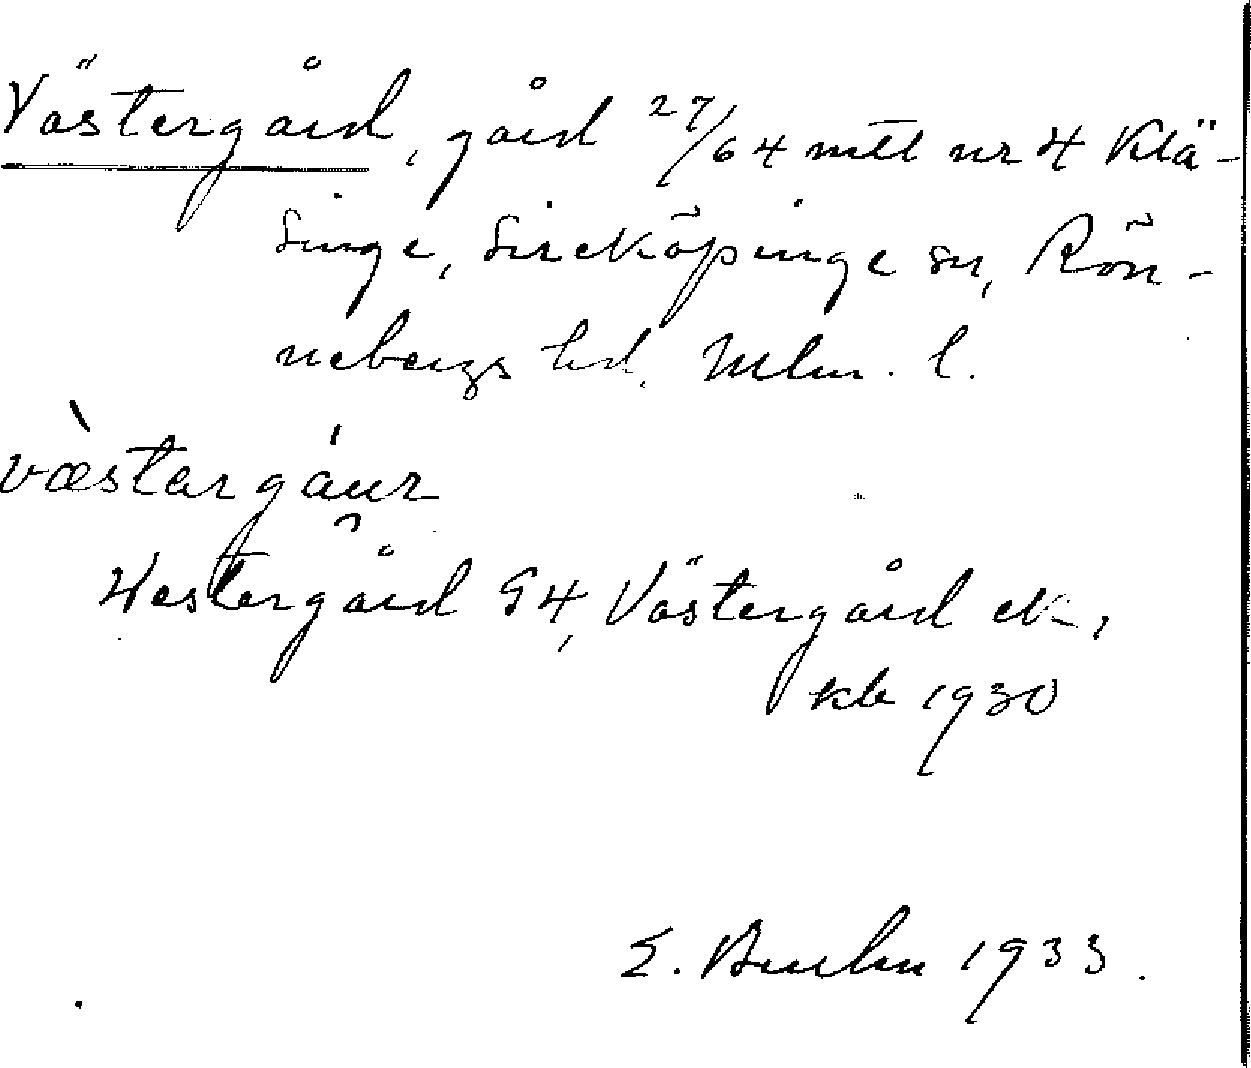 Västergård, gård 27/64 mtl nr 4 Klä-
singe, Sireköpinge sn, Rön-
nebergs hd. Mlm. l.
væ̀stargáur
Westergård G4, Västergård ek.,
kb 1930
E. 1933.